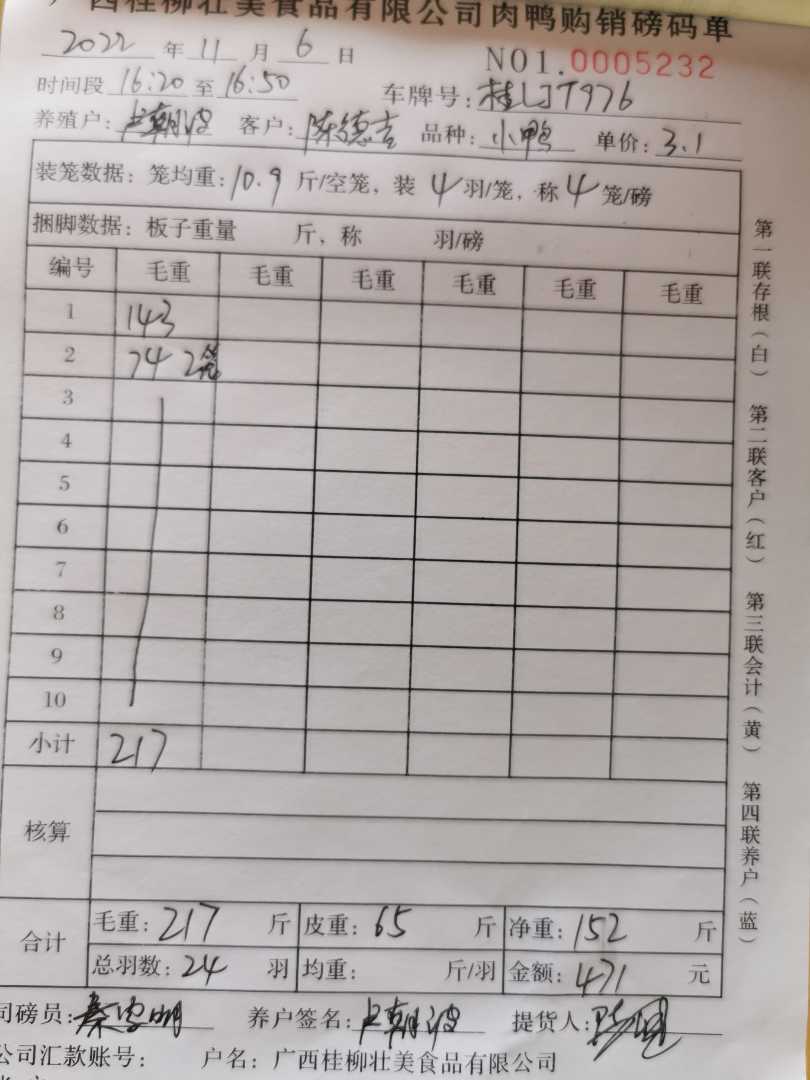 广西桂柳壮美食品有限公司肉鸭购销磅码单
2022 年 11 月 6 日 NO1.0005232
时间段 16:20 至 16:50 车牌号: 桂LJT976
养殖户: 卢朝波 客户: 陈德吉 品种: 小鸭 单价: 3.1
装笼数据: 笼均重: 10.9 斤/空笼, 装 4 羽/笼, 称 4 笼/磅
捆脚数据: 板子重量 斤, 称 羽/磅
编号 毛重 毛重 毛重 毛重 毛重 毛重
1 143
2 74 2笼
3
4
5
6
7
8
9
10
小计 217
核算
合计 毛重: 217 斤 皮重: 65 斤 净重: 152 斤
总羽数: 24 羽 均重: 斤/羽 金额: 471 元
司磅员: 秦 明 养户签名: 卢朝波 提货人:
公司汇款账号: 户名: 广西桂柳壮美食品有限公司
第一联存根(白) 第二联客户(红) 第三联会计(黄) 第四联养户(蓝)